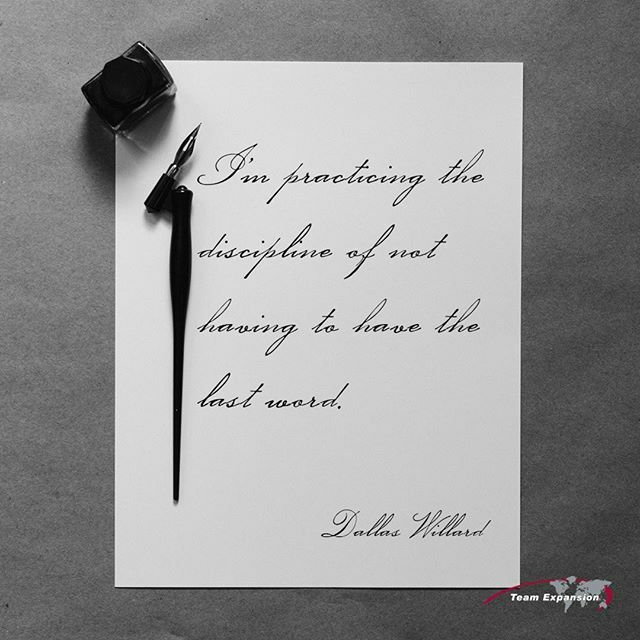 I'm practicing the
discipline of not
having to have the
last word.
Dallas Willard
Team Expansion